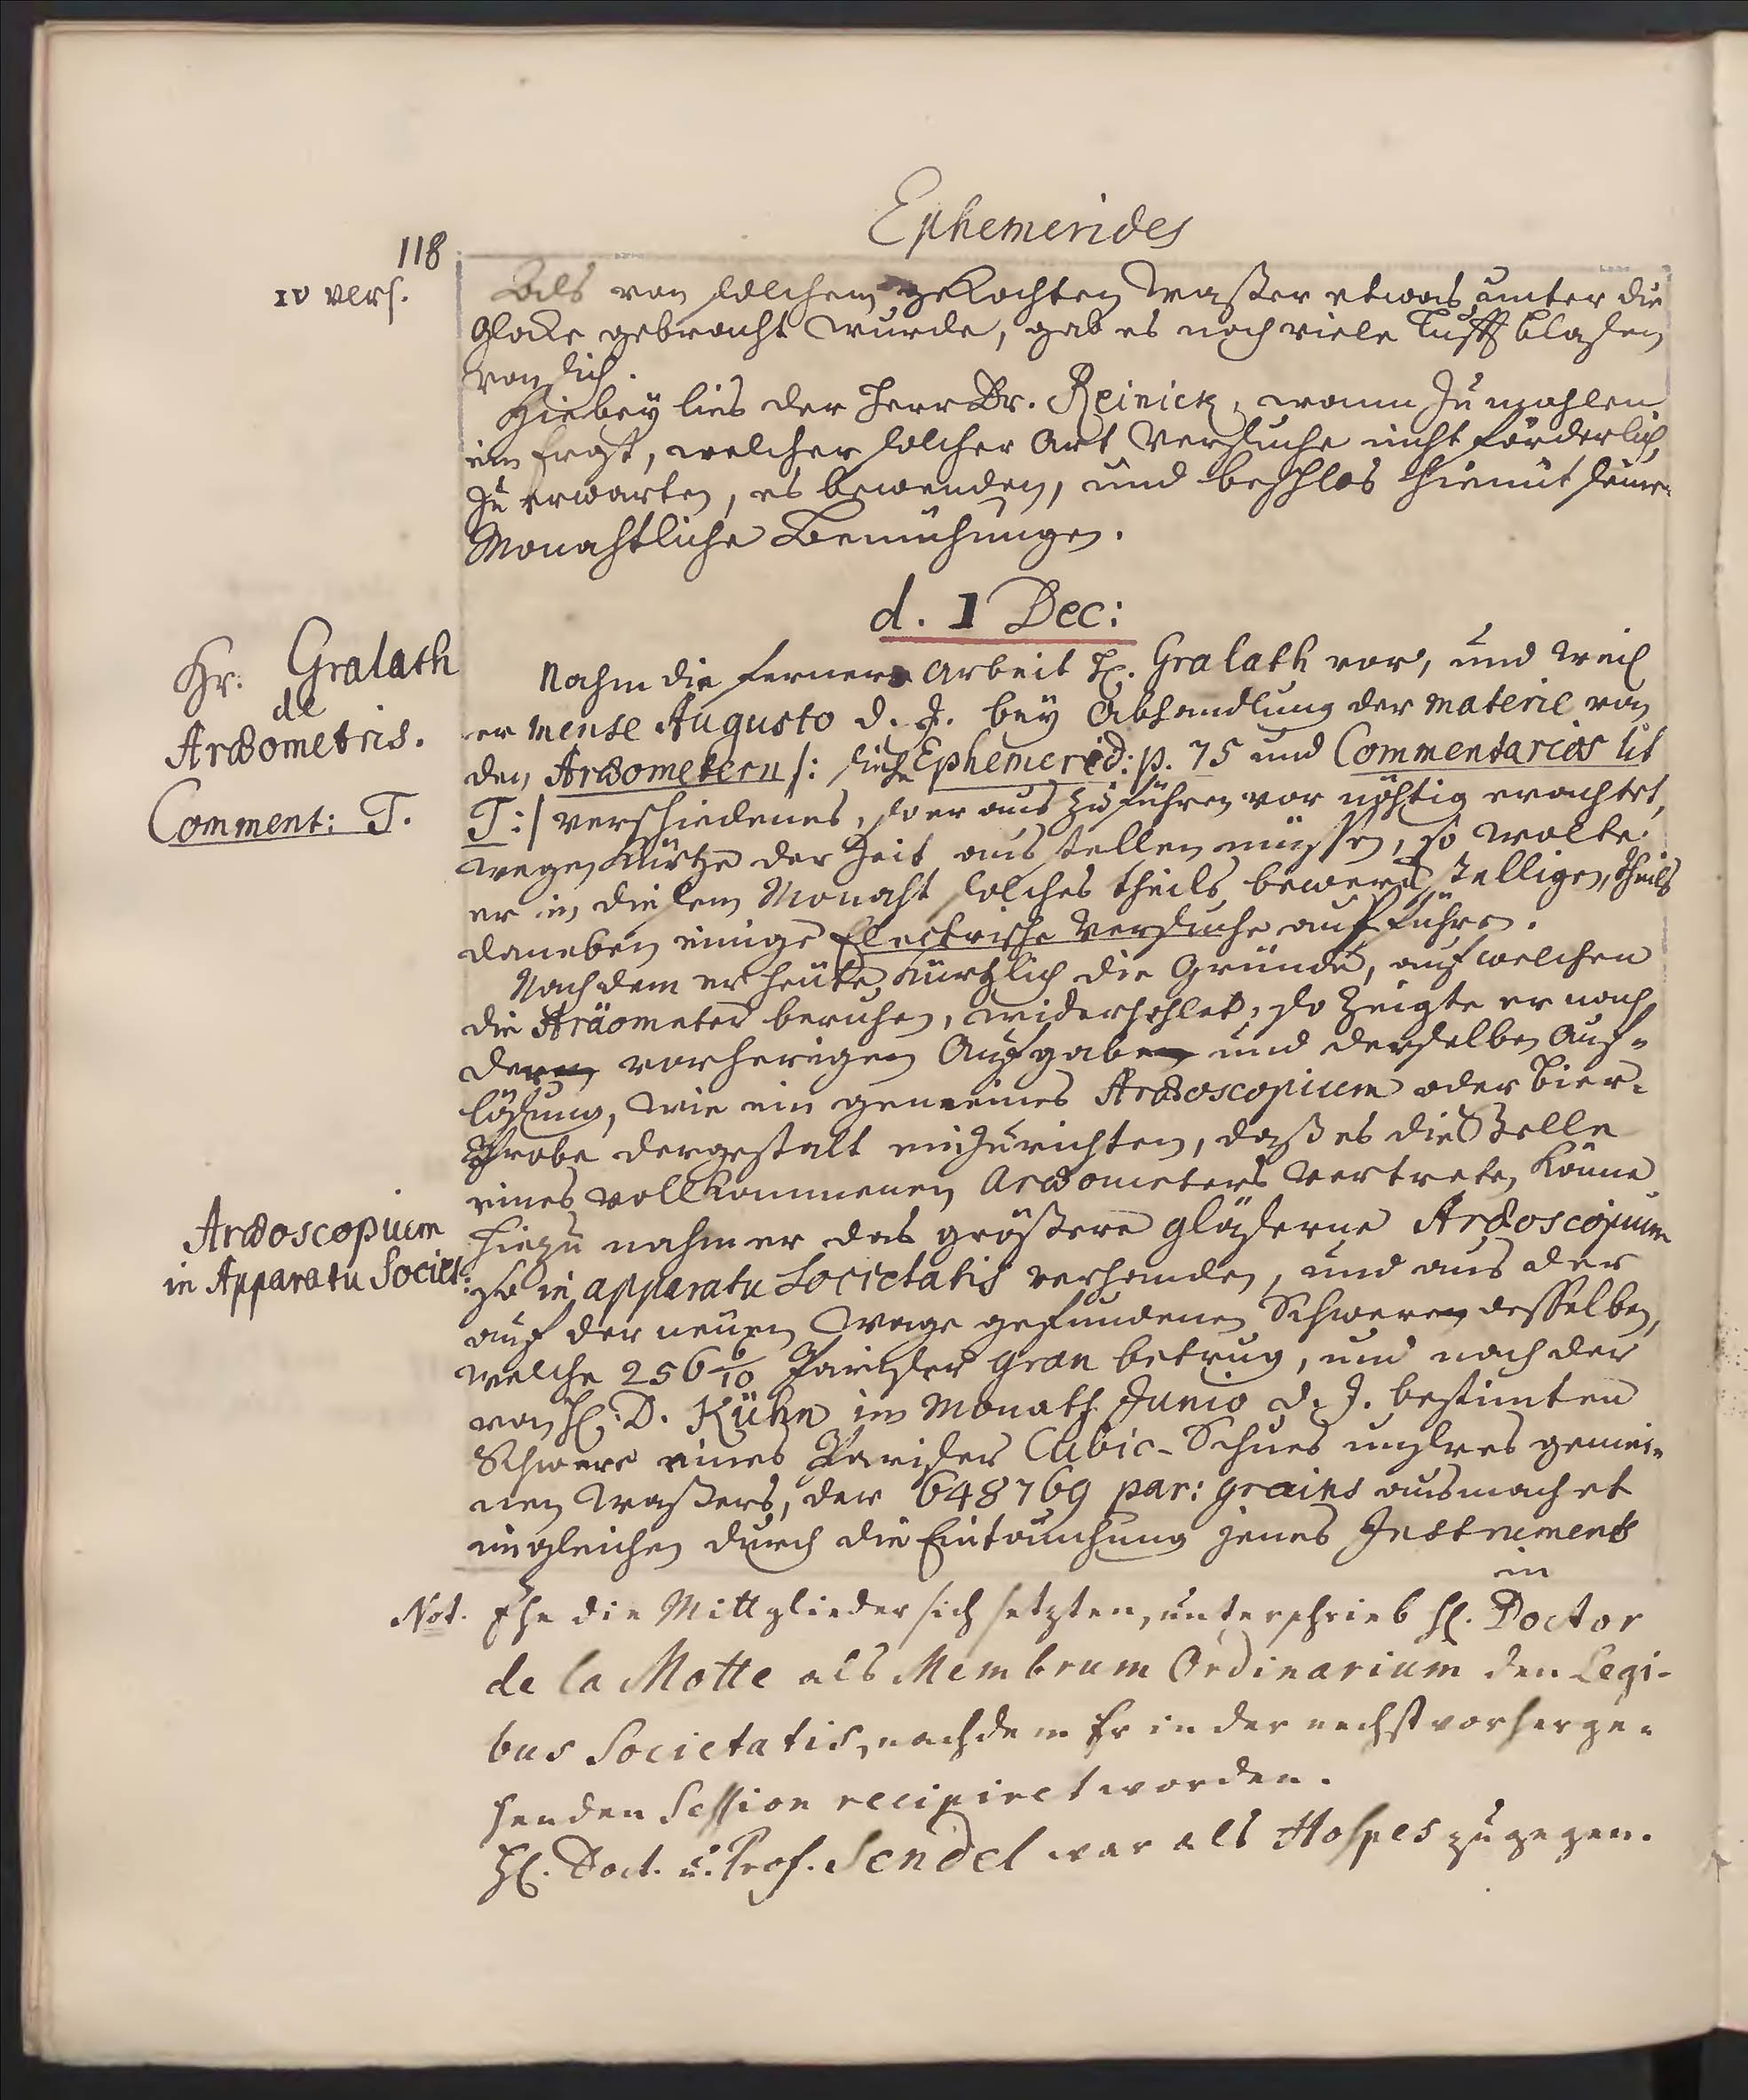 Ephemerides
118
IV Vers.
Als von solchem gekochten Waßer etwas unter die
Glocke gebracht wurde, gab es noch viele Lufft blasen
von sich.
Hiebey lies der Herr Dr. Reinick, wann zu mahlen
ein Frost, welcher solcher Art Versuche nicht förderlich,
zu erwarten, es bewenden, und beschlos hiemit seine
Monahtliche Bemühungen.
d. 1 Dec:
Hr. Gralath
de
Aræometris.
Comment: T.
Nahm die fernere Arbeit H. Gralath vor, und weil
er mense Augusto d. J. bey Abhandlung der materie von
den Aræometern /: siehe Ephemerid: p. 75 und Commentarios lit
T:/ verschiedenes, so er aus zu führen vor nöhtig erachtet,
wegen Kürtze der Zeit aus stellen müssen, so wolte
er in diesem Monaht solches theils bewerckstelligen, theils
daneben einige Electrische Versuche auf führen.
Nach dem er heute kürtzlich die Gründe, auf welchen
die Aräometer beruhen, widerhohlet, so zeigte er nach
der vorherigen Aufgabe und derselben Auf-
lösung, wie ein gemeines Aræoscopium oder Bier-
Probe dergestalt einzurichten, daß es die Stelle
eines vollkommenen Aræometers vertreten könne
Aræoscopium
in Apparatu Societ:
hiezu nahm er das größere gläserne Aræoscopium
so in apparatu Societatis verhanden, und aus der
auf der neuen Wage gefundenen Schwere desselben,
welche 256 6/10 Pariser gran betrug, und nach der
von H. D. Kühn im Monath Junio d. J. bestimten
Schwere eines Pariser Cubic-Schues unsres gemei-
nen Waßers, der 648769 par: grains ausmachet
imgleichen durch die Eintauchung jenes Instruments
in
Not. Ehe die Mittglieder sich setzten, unterschrieb H. Doctor
de la Motte als Membrum Ordinarium den Legi-
bus Societatis, nachdem Er in der nechst vorherge-
henden Session recipiret worden.
H. Doct. u. Prof. Sendel war als Hospes zugegen.